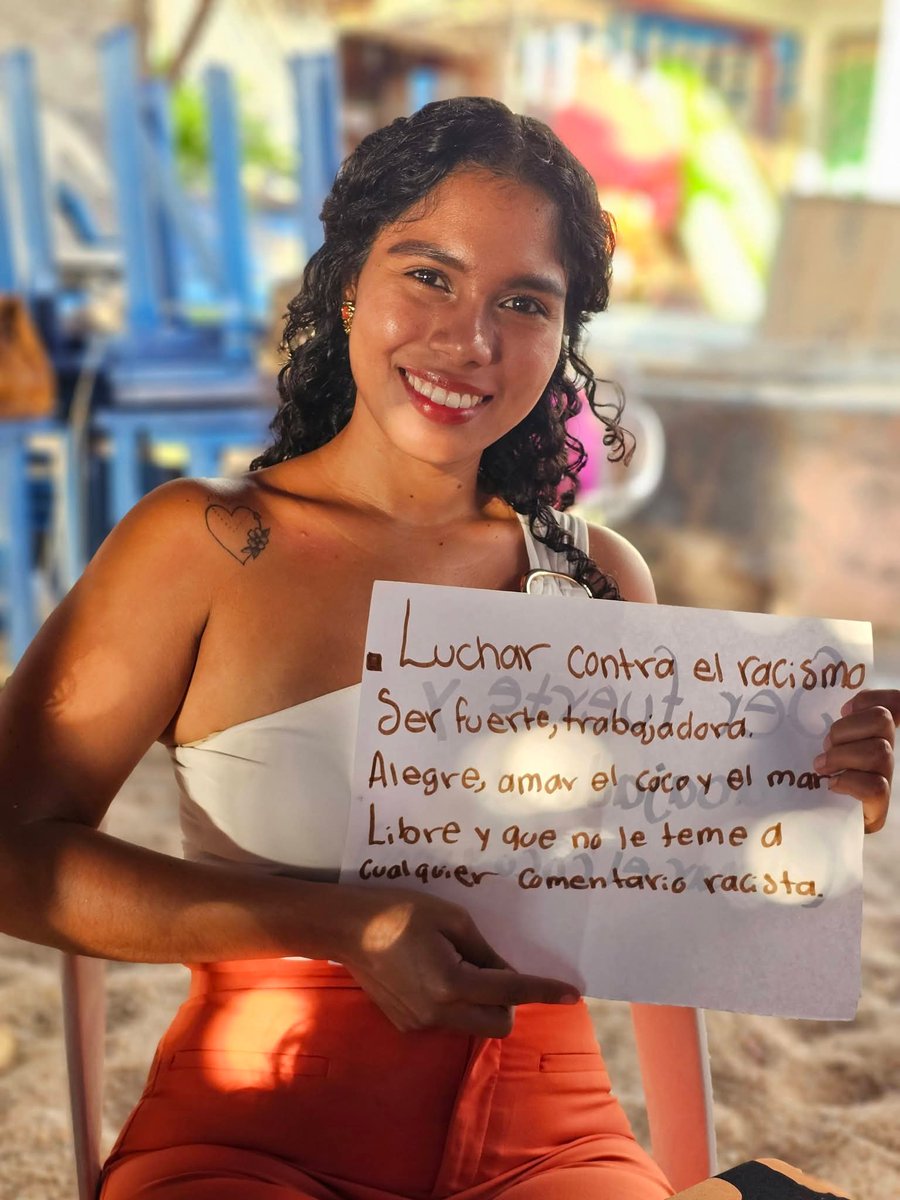 . Luchar contra el racismo
Ser fuerte, trabajadora.
Alegre, amar el coco y el mar
Libre y que no le teme a
cualquier comentario racista.